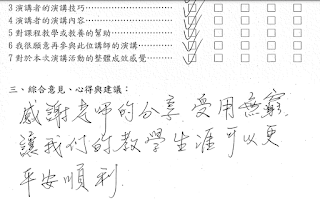 3 演講者的演講技巧
4 演講者的演講內容
5 對課程教學或教養的幫助
6 我很願意再參與此位講師的演講
7 對於本次演講活動的整體成效感覺
三、綜合意見、心得與建議：
感謝老師的分享，受用無窮，
讓我們的教學生涯可以更
平安順利.